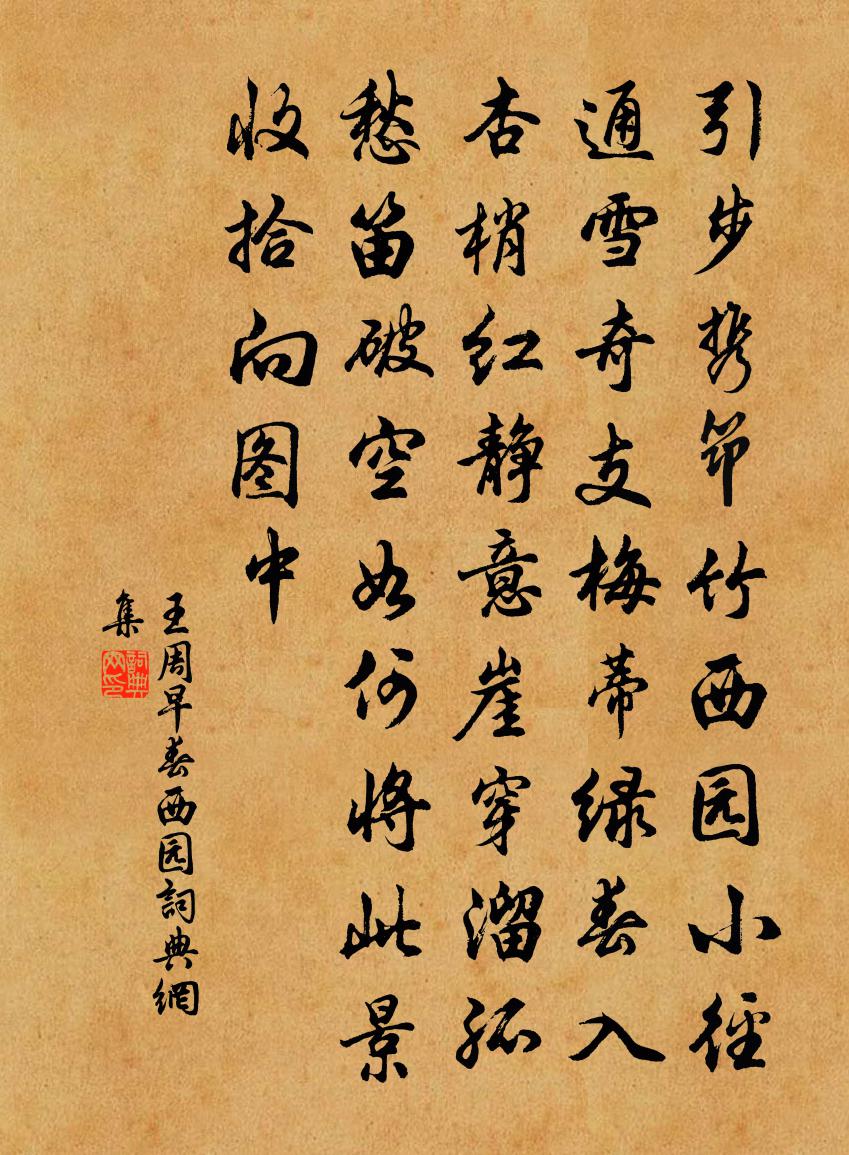 引步携筇竹西园小径
通雪奇支梅蒂绿春入
杏梢红静意崖穿溜孤
愁笛破空如何将此景
收拾向图中
王周早春西园詞典網
集
詞典网印